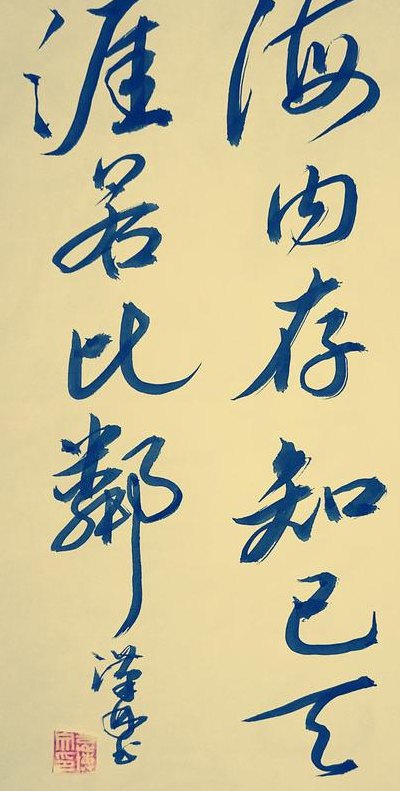 海内存知己天
涯若比鄰